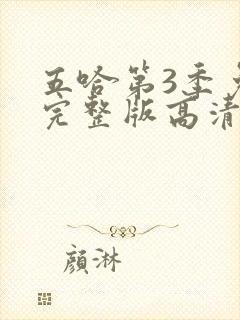 五哈第3季
完整版高清
顏淋